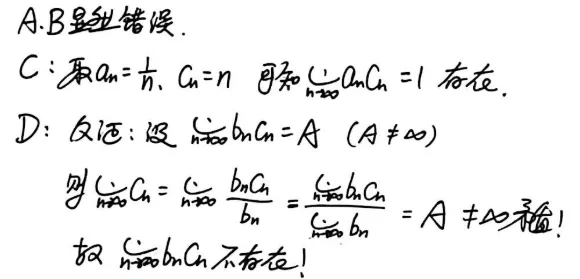 A.B显然错误.
C：取aₙ=1/n, Cₙ=n 可知 lim_{n→∞} aₙCₙ =1 存在.
D：反证：设 lim_{n→∞} bₙCₙ = A (A≠∞)
则 lim_{n→∞} Cₙ = lim_{n→∞} bₙCₙ/bₙ = lim_{n→∞} bₙCₙ / lim_{n→∞} bₙ = A ≠∞ 矛盾!
故 lim_{n→∞} bₙCₙ 不存在!